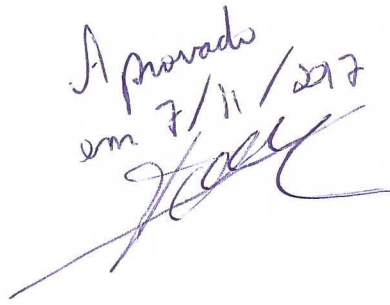 Aprovado
em 7/11/2017